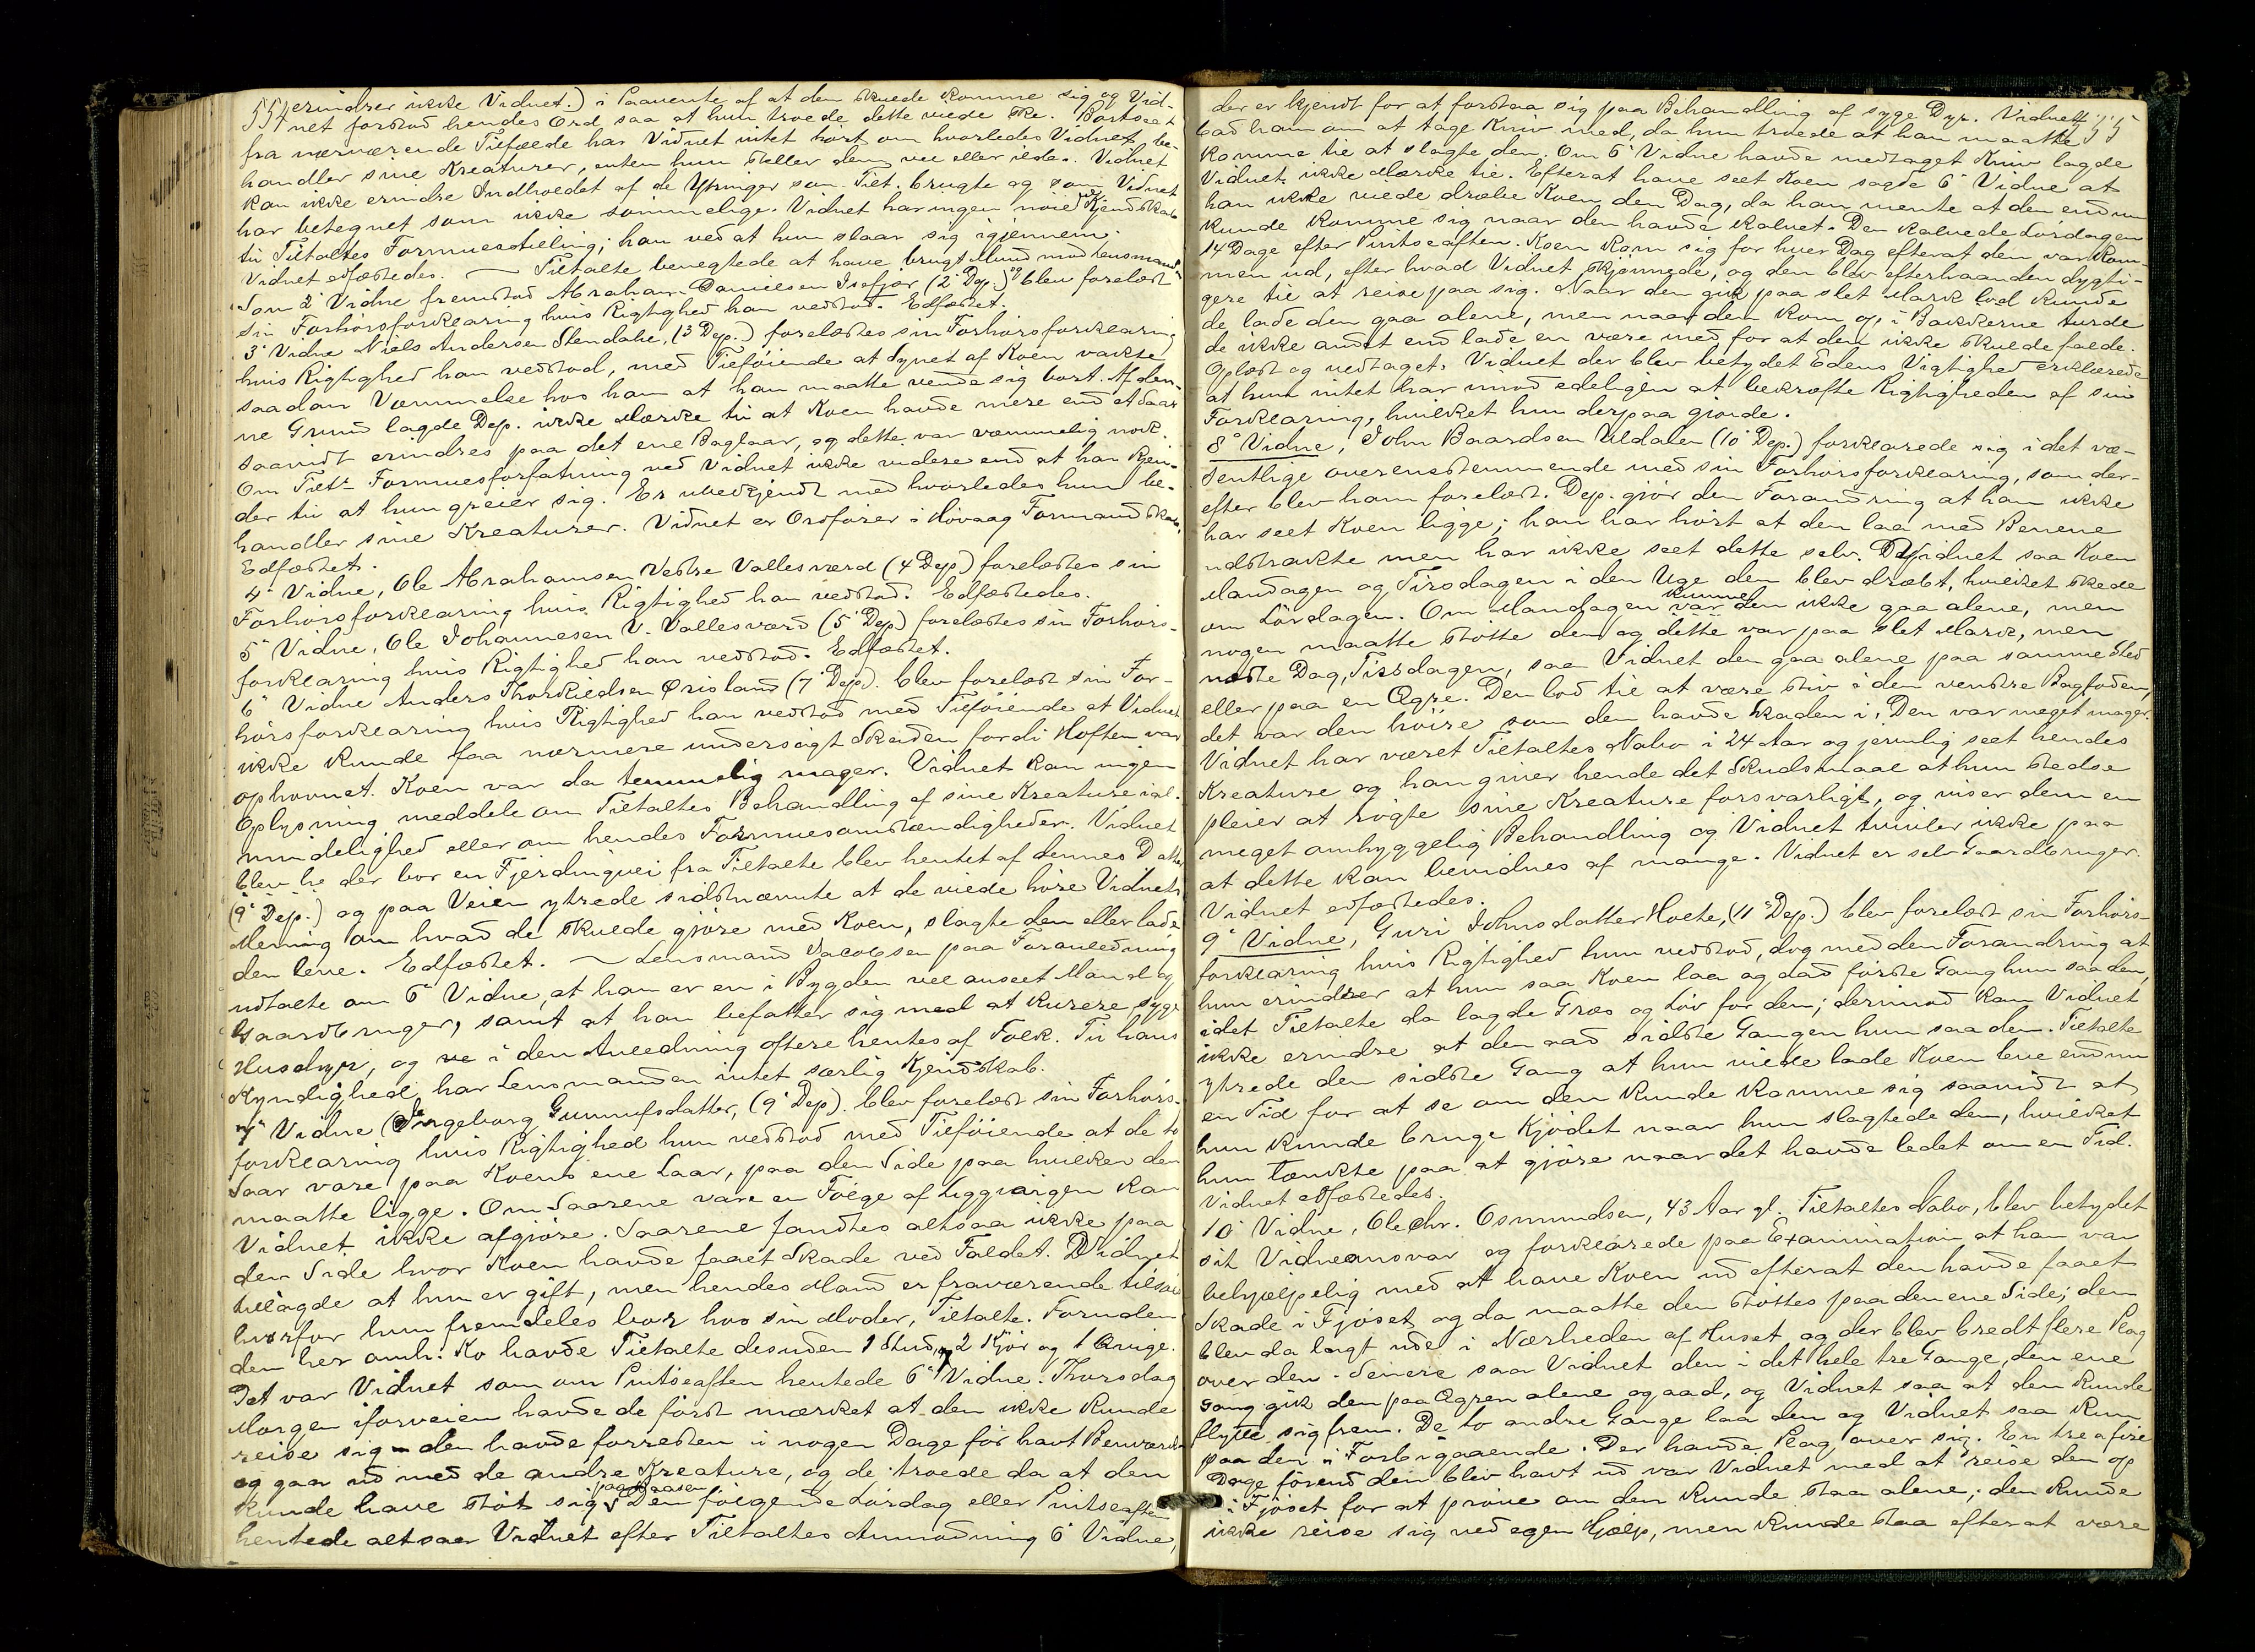 554
erindrer ikke Vidnet.) i Paavente af at den skulde komme sig og Vid-
net forstod hendes Ord saa at hun troede dette vilde ske. Bortseet
fra nærværende Tilfælde har Vidnet intet hørt om hvorledes Vidnet be-
handler sine Kreaturer, enten hun steller dem vel eller ilde. Vidnet
kan ikke erindre Indholdet af de Ytringer som Tilt. brugte og som Vidnet
har betegnet som ikke sømmelige. Vidnet har ingen nøie Kjendskab
til Tiltaltes Formuesstilling; han ved at hun slaar sig igjennem.
Vidnet edfæstedes. — Tiltalte benegtede at have brugt Mund mod Lensmanden
Som 2° Vidne fremstod Abraham Danielsen Isefjær (2° Dep.) blev forelæst
sin Forhørsforklaring hvis Rigtighed han vedstod. Edfæstet.
3° Vidne Niels Andersen Stendalen, (3° Dep.) forelæstes sin Forhørsforklaring
hvis Rigtighed han vedstod, med Tilføiende at Synet af Koen vakte
saadan Væmmelse hos ham at han maatte vende sig bort. Af den-
ne Grund lagde Dep. ikke Mærke til at Koen havde mere end et Saar
saavidt erindres paa det ene Baglaar, og dette var væmmelig nok.
Om Tilts Formuesforfatning ved Vidnet ikke videre end at han kjen-
der til at hun greier sig. Er ubekjendt med hvorledes hun be-
handler sine Kreaturer. Vidnet er Ordfører i Høvaag Formandskab.
Edfæstet.
4° Vidne, Ole Abrahamsen Vestre Vallesværd (4° Dep) forelæstes sin
Forhørsforklaring hvis Rigtighed han vedstod. Edfæstedes.
5° Vidne, Ole Johannesen V. Vallesværd (5° Dep) forelæstes sin Forhørs-
forklaring hvis Rigtighed han vedstod. Edfæstet.
6° Vidne Anders Thorkildsen Ørisland (7° Dep). blev forelæst sin For-
hørsforklaring hvis Rigtighed han vedstod med Tilføiende at Vidnet
ikke kunde faa nærmere undersøgt Skaden fordi Hoften var
ophovnet. Koen var da temmelig mager. Vidnet kan ingen
Oplysning meddele om Tiltaltes Behandling af sine Kreature i al-
mindelighed eller om hendes Formuesomstændigheder. Vidnet
der bor en Fjerdingvei fra Tiltalte blev hentet af dennes Datter
(9° Dep.) og paa Veien ytrede sidstnævnte at de vilde høre Vidnets
Mening om hvad de skulde gjøre med Koen, slagte den eller lade
den leve. Edfæstet. — Lensmand Jacobsen paa Foranledning
udtalte om 6° Vidne, at han er en i Bygden vel anseet Mand og
Gaardbruger, samt at han befatter sig med at kurere syge
Husdyr, og i den Anledning oftere hentes af Folk. Til hans
Kyndighed har Lensmanden intet særlig Kjendskab.
7° Vidne Ingeborg Gunnufsdatter, (9° Dep). blev forelæst sin Forhørs-
forklaring hvis Rigtighed hun vedstod med Tilføiende at de to
Saar vare paa Koens ene Laar, paa den Side paa hvilken den
maatte ligge. Om Saarene vare en Følge af Liggingen kan
Vidnet ikke afgjøre. Saarene fandtes altsaa ikke paa
den Side hvor Koen havde faaet Skade ved Faldet. Vidnet
tillagde at hun er gift, men hendes Mand er fraværende tilsøs
hvorfor hun fremdeles bor hos sin Moder, Tiltalte. Foruden
den her omh. Ko havde Tiltalte desuden 1 Stud, 2 Kjør og 1 Qvige.
Det var Vidnet som om Pintseaften hentede 6° Vidne. Thorsdag
Morgen iforveien havde de først mærket at den ikke kunde
reise sig – den havde forresten i nogen Dage før havt Benværk
og gaar ud med de andre Kreature, og de troede da at den
kunde have stødt sig paa Baasen Den følgende Lørdag eller Pintseaften
hentede altsaa Vidnet efter Tiltaltes Anmodning 6° Vidne,
555
der er kjendt for at forstaa sig paa Behandling af syge Dyr. Vidnet
bad ham om at tage Kniv med, da hun troede at han maatte
komme til at slagte den. Om 6° Vidne havde medtaget Kniv lagde
Vidnet ikke Mærke til. Efterat have seet Koen sagde 6° Vidne at
han ikke vilde dræbe Koen den Dag, da han mente at den endnu
kunde komme sig naar den havde kalvet. Den kalvede Lørdagen
14 Dage efter Pintseaften. Koen kom sig for hver Dag efterat den var kom-
men ud, efter hvad Vidnet skjønnede, og den blev efterhaanden dygti-
gere til at reise paa sig. Naar den gik paa slet Mark lod kunde
de lade den gaa alene, men naar den kom op i Bakkerne turde
de ikke andet end lade en være med for at den ikke skulde falde.
Oplæst og vedtaget. Vidnet der blev betydet Edens Vigtighed erklærede
at hun intet har imod edeligen at bekræfte Rigtigheden af sin
Forklaring, hvilket hun derpaa gjorde.
8° Vidne, John Baardsen Uldalen (10° Dep.) forklarede sig i det væ-
sentlige overensstemmende med sin Forhørsforklaring, som der-
efter blev ham forelæst. Dep. gjør den Forandring at han ikke
har seet Koen ligge; han har hørt at den laa med Benene
udstrakte men har ikke seet dette selv. Vidnet saa Koen
Mandagen og Tirsdagen i den Uge den blev dræbt, hvilket skede
om Lørdagen. Om Mandagen kunne den ikke gaa alene, men
nogen maatte støtte den og dette var paa slet Mark, men
næste Dag, Tirsdagen, saa Vidnet den gaa alene paa samme Sted
eller paa en Ager. Den lod til at være stiv i den venstre Bagfoden,
det var den høire som den havde Skaden i. Den var meget mager.
Vidnet har været Tiltaltes Nabo i 24 Aar og jevnlig seet hendes
Kreature og han giver hende det Skudsmaal at hun stedse
pleier at røgte sine Kreature forsvarligt, og viser dem en
meget omhyggelig Behandling og Vidnet tviler ikke paa
at dette kan bevidnes af mange. Vidnet er selv Gaardbruger.
Vidnet edfæstedes.
9° Vidne, Guri Johnsdatter Holte, (11° Dep.) blev forelæst sin Forhørs-
forklaring hvis Rigtighed hun vedstod, dog med den Forandring at
hun erindrer at hun saa Koen laa og aad første Gang hun saa den,
idet Tiltalte da lagde Græs og Løv for den; derimod kan Vidnet
ikke erindre at den aad sidste Gangen hun saa den. Tiltalte
ytrede den sidste Gang at hun vilde lade Koen leve endnu
en Tid for at se om den kunde komme sig saavidt at
hun kunde bruge Kjødet naar hun slagtede den, hvilket
hun tænkte paa at gjøre naar det havde ledet om en Tid.
Vidnet edfæstedes.
10° Vidne, Ole Chr. Osmundsen, 43 Aar gl. Tiltaltes Nabo, blev betydet
sit Vidneansvar og forklarede paa Examination at han var
behjælpelig med at have Koen ud efterat den havde faaet
Skade i Fjøset og da maatte den støttes paa den ene Side; den
blev da lagt ude i Nærheden af Huset og der blev bredt flere Plag
over den. Senere saa Vidnet den i det hele tre Gange, den ene
Gang gik den paa Ageren alene og aad, og Vidnet saa at den kunde
flytte sig frem. De to andre Gange laa den og Vidnet saa kun
paa den i Forbigaaende. Der havde Plag over sig. En tre a fire
Dage førend den blev havt ud var Vidnet med at reise den op
i Fjøset for at prøve om den kunde staa alene; den kunde
ikke reise sig ved egen Hjælp, men kunde staa efterat være